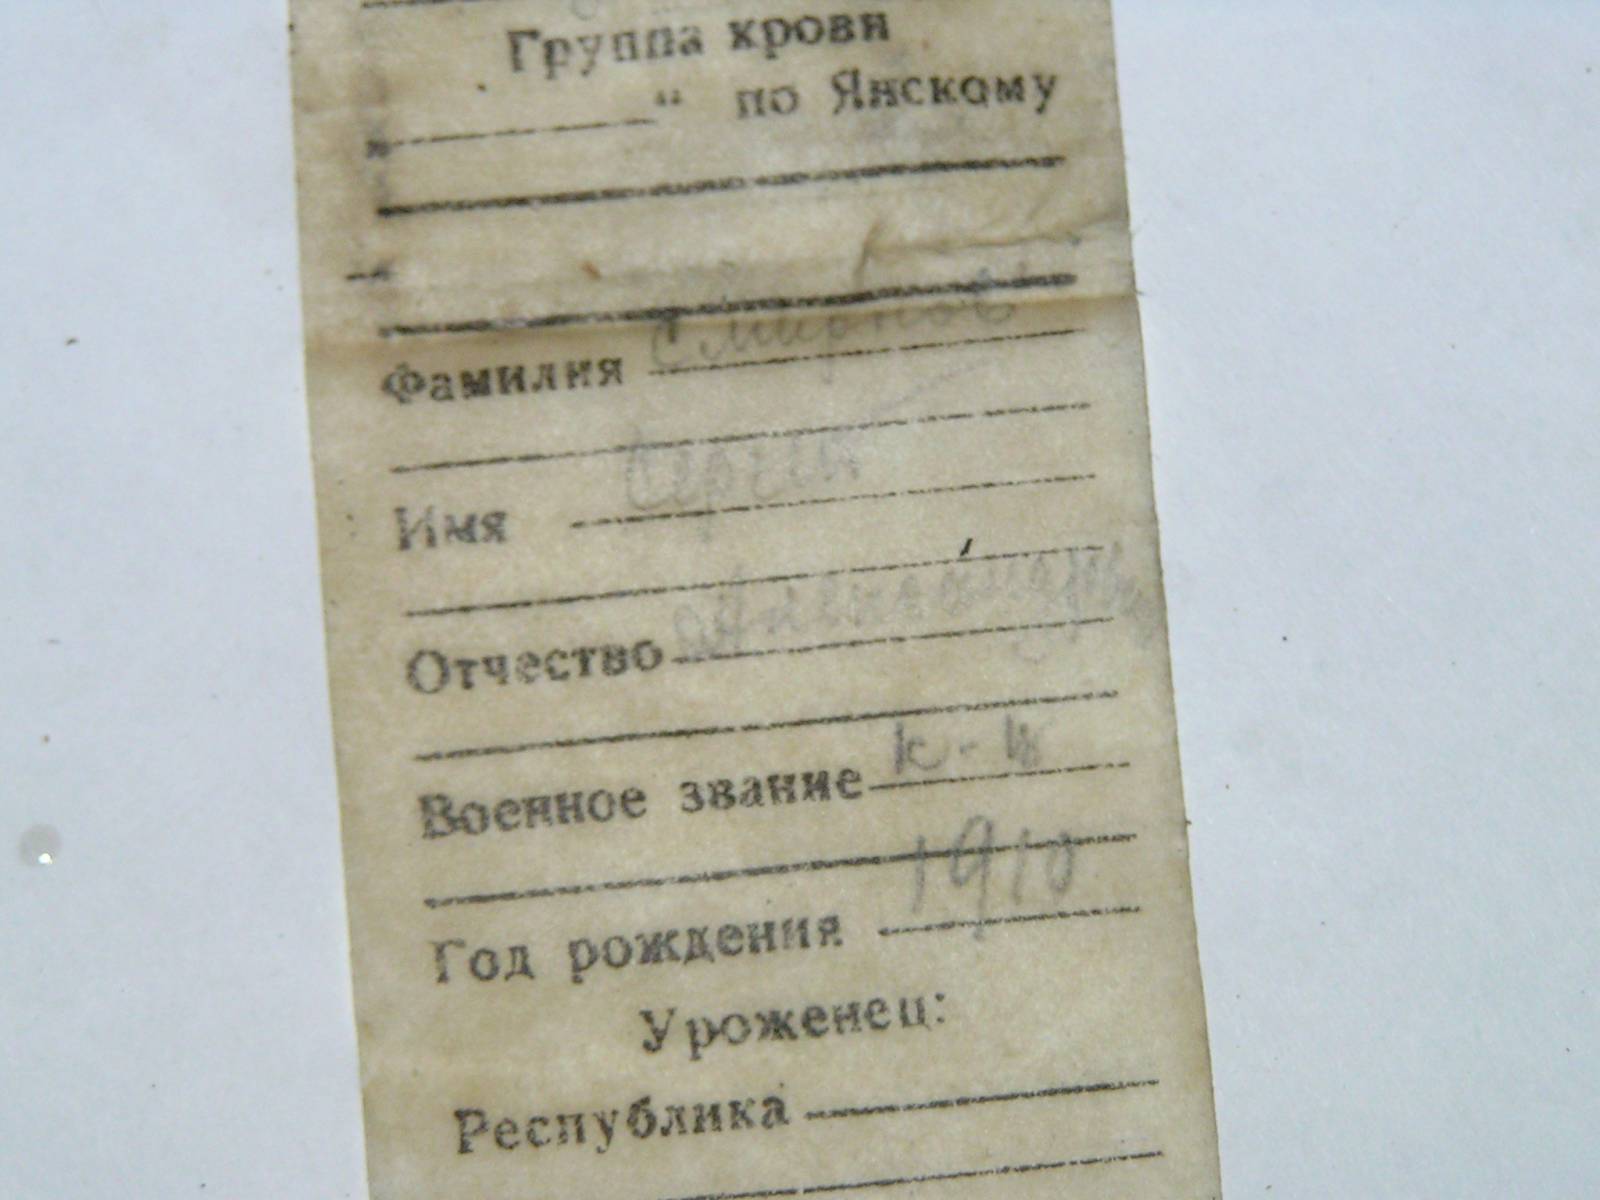 Группа крови
„ “ по Янскому
Фамилия Смирнов
Имя Сергей
Отчество Александрович
Военное звание к-ц
Год рождения 1910
Уроженец:
Республика